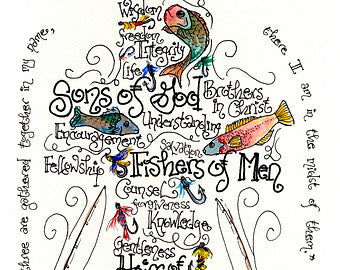 Wisdom
Freedom
Integrity
Life
Sons of God
Brothers
in Christ
Encouragement
Understanding
Salvation
Fellowship
Fishers of Men
Counsel
forgiveness
Knowledge
gentleness
three are gathered together in my name,
there I am in the midst of them."